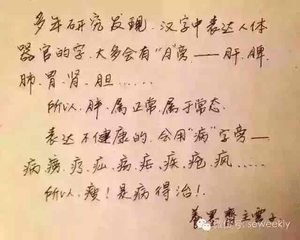 多年研究发现，汉字中表达人体
器官的字，大多会有“月”旁——肝、脾、
肺、胃、肾、胆……
所以，胖，属正常，属于常态。
表达不健康的，会用“病”字旁——
病、疾、疤、疯……
所以，瘦！是病得治！